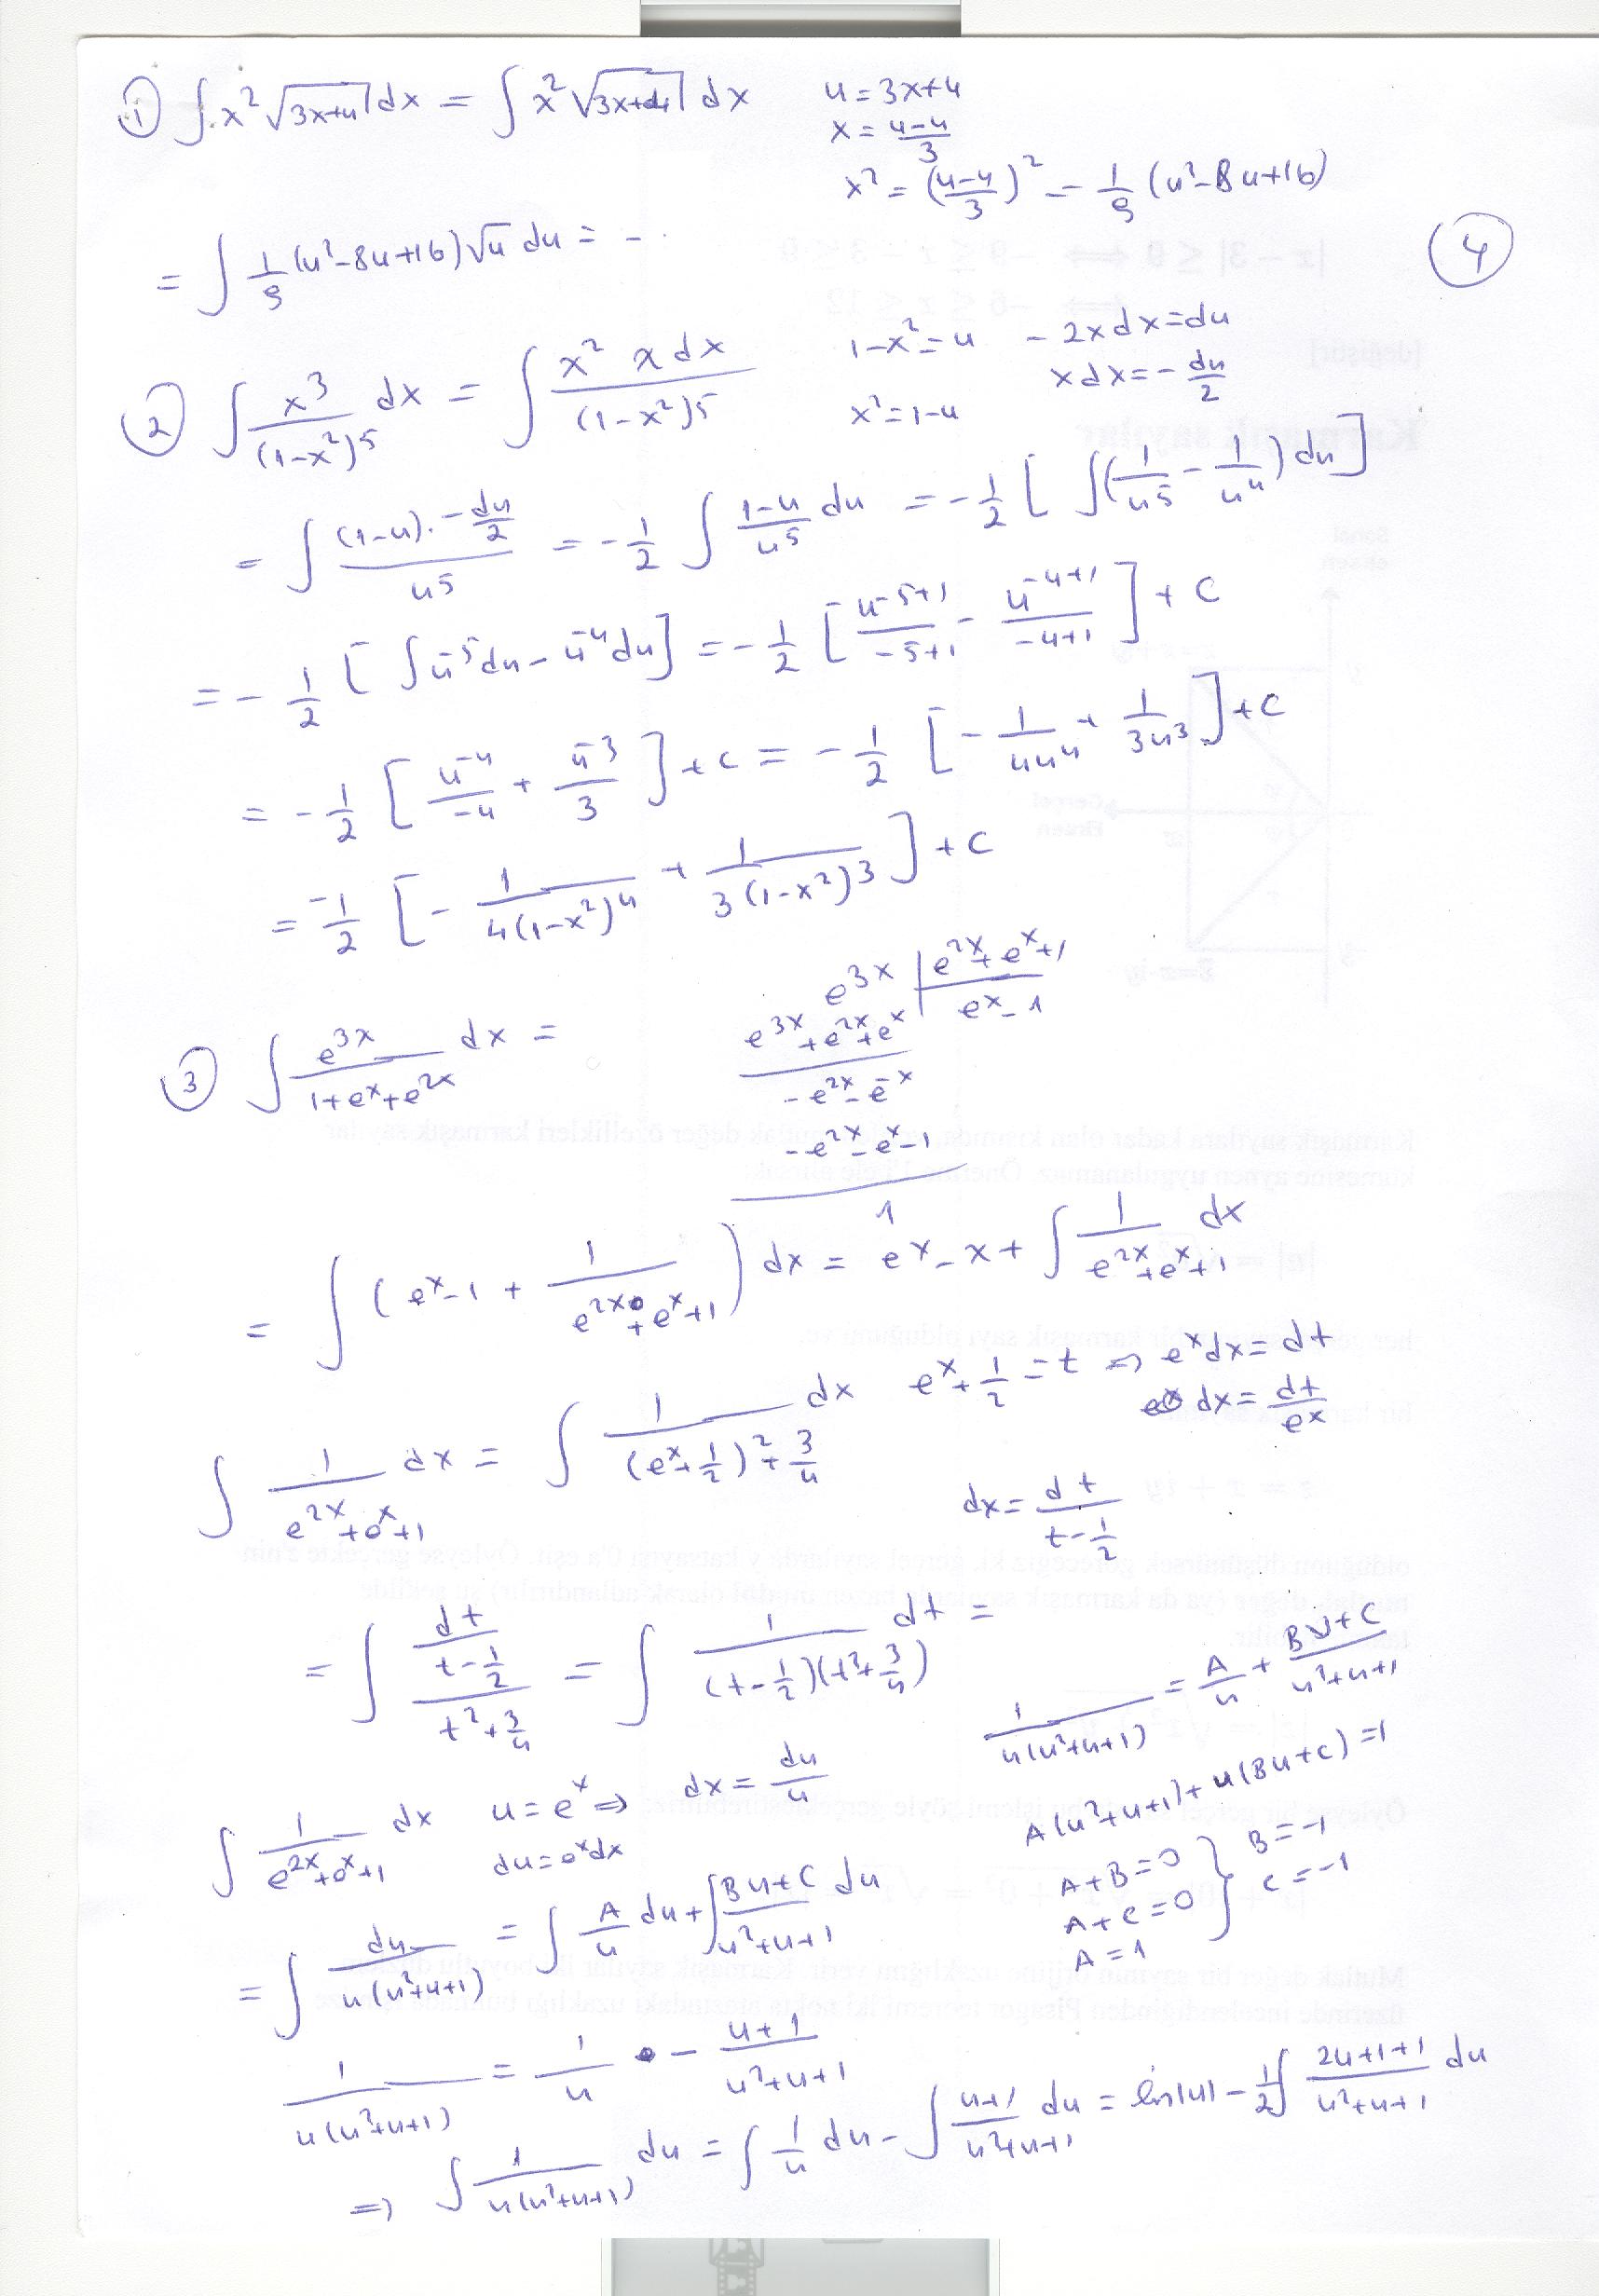 ① ∫ x² √(3x+4) dx = ∫ x² √(3x+4) dx    u = 3x+4
x = (u-4)/3
x² = ((u-4)/3)² = 1/9 (u²-8u+16)
= ∫ 1/9 (u²-8u+16) √u du = - .
④
② ∫ x³/(1-x²)⁵ dx = ∫ x² x dx/(1-x²)⁵    1-x² = u    -2x dx = du
x dx = - du/2
x² = 1-u
= ∫ (1-u). - du/2 / u⁵ = - 1/2 ∫ (1-u)/u⁵ du = - 1/2 [ ∫ (1/u⁵ - 1/u⁴) du ]
= - 1/2 [ ∫ u⁻⁵ du - u⁻⁴ du ] = - 1/2 [ u⁻⁵⁺¹/(-5+1) - u⁻⁴⁺¹/(-4+1) ] + C
= - 1/2 [ u⁻⁴/-4 + u⁻³/3 ] + C = - 1/2 [ - 1/4u⁴ + 1/3u³ ] + C
= -1/2 [ - 1/4(1-x²)⁴ + 1/3(1-x²)³ ] + C
③ ∫ e³ˣ/(1+eˣ+e²ˣ) dx =
e³ˣ | e²ˣ+eˣ+1
e³ˣ+e²ˣ+eˣ    eˣ-1
-e²ˣ-eˣ
-e²ˣ-eˣ-1
1
= ∫ (eˣ-1 + 1/(e²ˣ+eˣ+1)) dx = eˣ-x+ ∫ 1/(e²ˣ+eˣ+1) dx
∫ 1/(e²ˣ+eˣ+1) dx = ∫ 1/((eˣ+1/2)²+3/4) dx    eˣ+1/2 = t ⇒ eˣdx = dt
dx = dt/eˣ
dx = dt/(t-1/2)
= ∫ (dt/(t-1/2))/(t²+3/4) = ∫ 1/((t-1/2)(t²+3/4)) dt =
1/(u(u²+u+1)) = A/u + (Bu+C)/(u²+u+1)
∫ 1/(e²ˣ+eˣ+1) dx    u = eˣ ⇒ dx = du/u
du = eˣdx
A(u²+u+1)+u(Bu+C) = 1
A+B=0 } B=-1
A+C=0 } C=-1
A=1
= ∫ du/(u(u²+u+1)) = ∫ A/u du + ∫ (Bu+C)/(u²+u+1) du
1/(u(u²+u+1)) = 1/u - (u+1)/(u²+u+1)
⇒ ∫ 1/(u(u²+u+1)) du = ∫ 1/u du - ∫ (u+1)/(u²+u+1) du = ln|u| - 1/2 ∫ (2u+1+1)/(u²+u+1) du